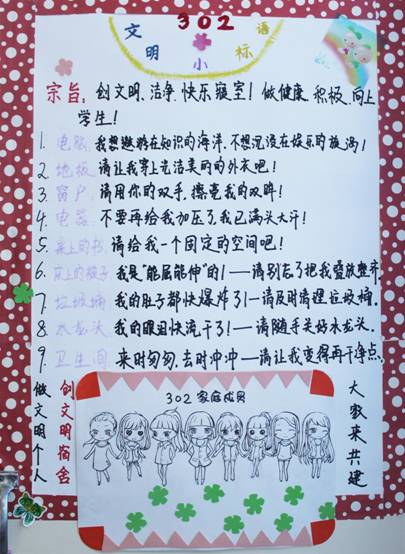 302
文明小标语
宗旨:创文明、洁净、快乐寝室!做健康、积极、向上
学生!
1. 电脑:我想遨游在知识的海洋,不想沉浸在娱乐的漩涡!
2. 地板:请让我穿上光洁美丽的外衣吧!
3. 窗户:请用你的双手,擦亮我的双眸!
4. 电器:不要再给我加压了,我已满头大汗!
5. 桌上的书:请给我一个固定的空间吧!
6. 床上的被子:我是“能屈能伸”的!——请别忘了把我叠放整齐.
7. 垃圾桶:我的肚子都快爆炸了!——请及时清理垃圾桶.
8. 水龙头:我的眼泪快流干了!——请随手关好水龙头.
9. 卫生间:来时匆匆,去时冲冲——请让我变得再干净点.
做文明个人
创文明宿舍
302 家庭成员
大家来共建